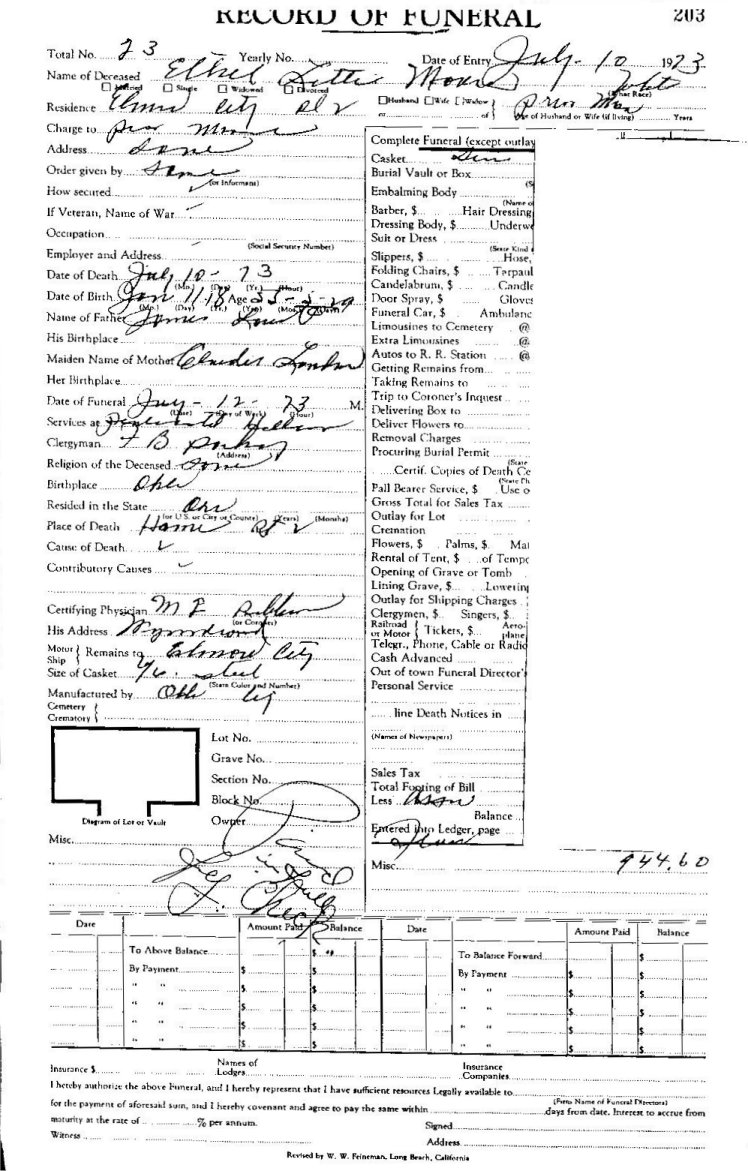 RECORD OF FUNERAL 203
Total No. 23 Yearly No. Date of Entry July - 10 1973
Name of Deceased Ethel Lettie Moore
Married Single Widowed Divorced (What Race)
Residence Elmore City Rt 2 Husband Wife Widow
or of Age of Husband or Wife (if living) Years
Charge to Moore
Address Same
Order given by Same
(or Informant)
How secured
If Veteran, Name of War
Occupation
(Social Security Number)
Employer and Address
Date of Death July 10 - 73
(Mo.) (Day) (Yr.) (Hour)
Date of Birth Jan 11 18 Age 55 - 5 - 29
(Mo.) (Day) (Yr.) (Yrs) (Mos) (Days)
Name of Father James
His Birthplace
Maiden Name of Mother
Her Birthplace
Date of Funeral July - 12 - 73 M.
(Date) (Day of Week) (Hour)
Services at
Clergyman F B
(Address)
Religion of the Deceased
Birthplace Okla
Resided in the State
(or U.S. or City or County) (Years) (Months)
Place of Death Home Rt 2
Cause of Death
Contributory Causes
Certifying Physician M E
(or Coroner)
His Address Wynnewood
Motor Ship Remains to Elmore City
Size of Casket 6/6 steel
(State Color and Number)
Manufactured by Okla
Cemetery
Crematory
Lot No.
Grave No.
Section No.
Block No.
Owner
Diagram of Lot or Vault
Misc.
Paid
in full
by
Check
Complete Funeral (except outlay
Casket
Burial Vault or Box
(S
Embalming Body
(Name o
Barber, $ Hair Dressing
Dressing Body, $ Underwe
Suit or Dress
(State Kind
Slippers, $ Hose,
Folding Chairs, $ Tarpaul
Candelabrum, $ Candle
Door Spray, $ Gloves
Funeral Car, $ Ambulanc
Limousines to Cemetery @
Extra Limousines @
Autos to R. R. Station @
Getting Remains from
Taking Remains to
Trip to Coroner's Inquest
Delivering Box to
Deliver Flowers to
Removal Charges
Procuring Burial Permit
(State
Certif. Copies of Death Ce
(State Ph
Pall Bearer Service, $ Use o
Gross Total for Sales Tax
Outlay for Lot
Cremation
Flowers, $ Palms, $ Mat
Rental of Tent, $ of Tempo
Opening of Grave or Tomb
Lining Grave, $ Lowering
Outlay for Shipping Charges
Clergymen, $ Singers, $
Railroad or Motor Tickers, $ Aero-plane
Telegr., Phone, Cable or Radio
Cash Advanced
Out of town Funeral Director's
Personal Service
line Death Notices in
(Names of Newspapers)
Sales Tax
Total Footing of Bill
Less
Balance
Entered into Ledger, page
Misc. 944.60
Date Amount Paid Balance Date Amount Paid Balance
To Above Balance $ To Balance Forward $
By Payment $ By Payment $ $
" " $ " " $ $
" " $ " " $ $
" " $ " " $ $
" " $ $ " " $ $
Insurance $ Names of Lodges Insurance Companies
I hereby authorize the above Funeral, and I hereby represent that I have sufficient resources Legally available to
(Firm Name of Funeral Directors)
for the payment of aforesaid sum, and I hereby covenant and agree to pay the same within days from date. Interest to accrue from
maturity at the rate of % per annum. Signed
Witness Address
Revised by W. W. Frineman, Long Beach, California